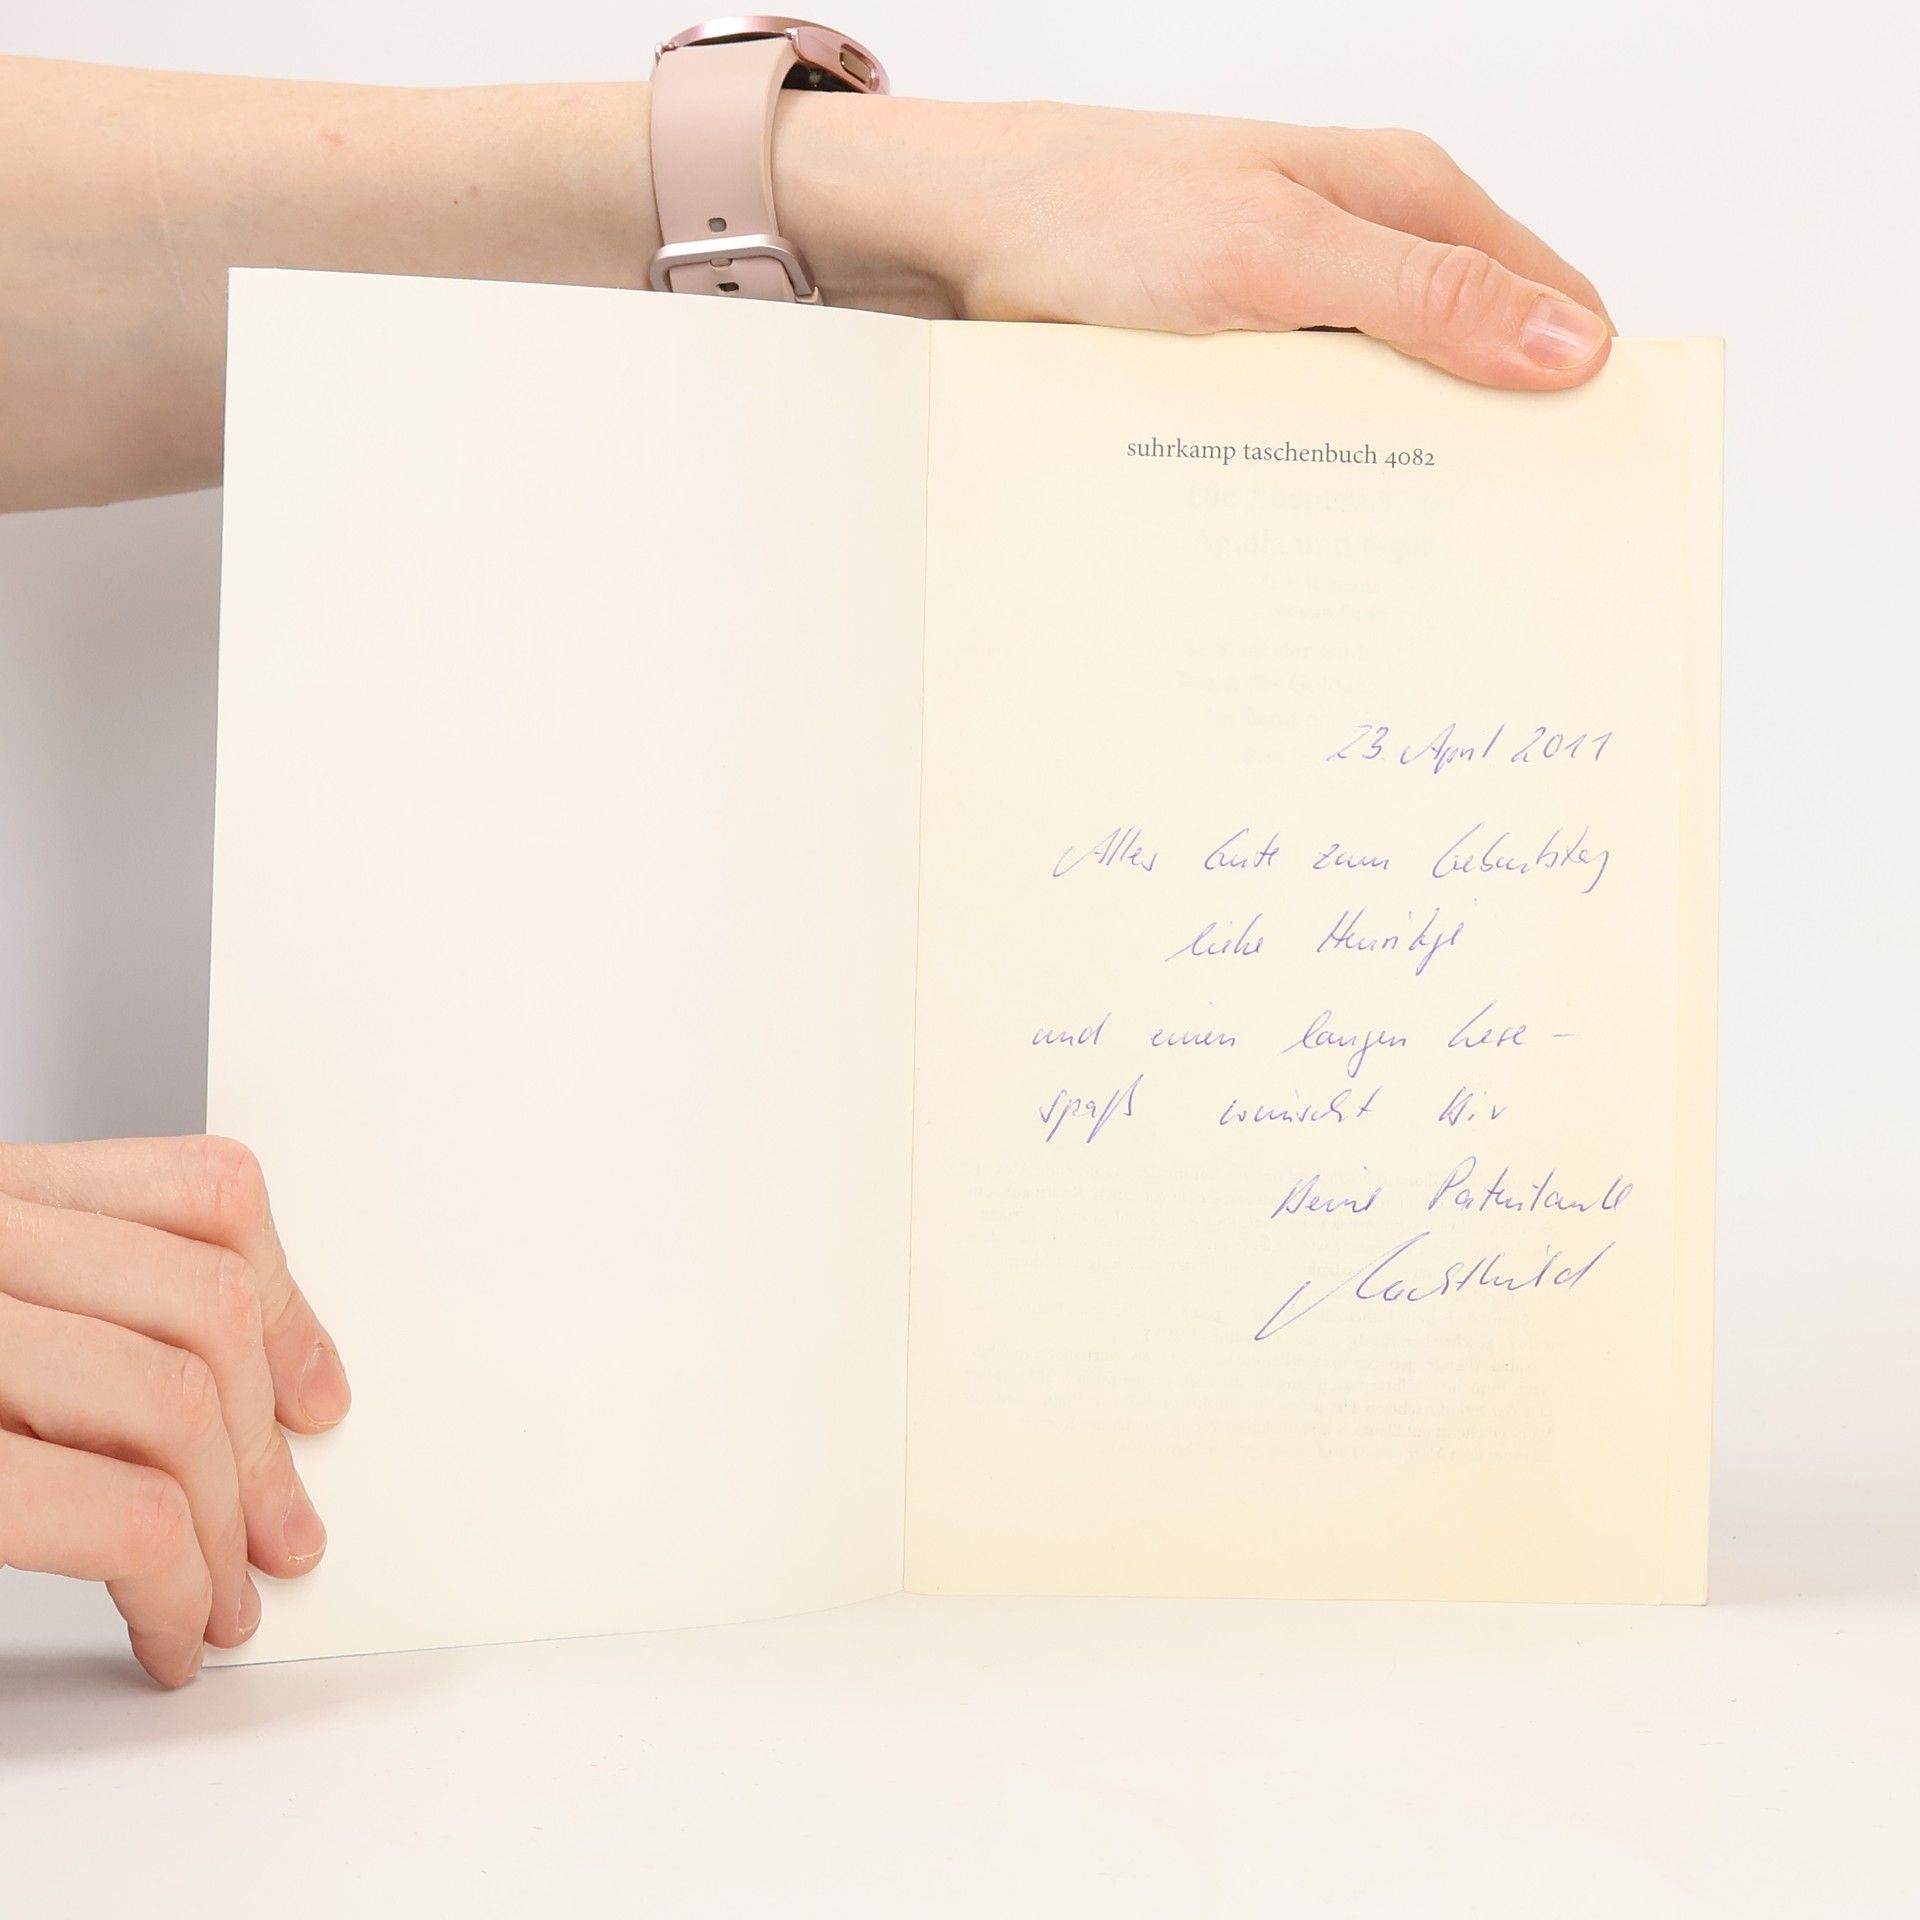 suhrkamp taschenbuch 4082
23. April 2011
Alles Gute zum Geburtstag
liebe Henrikje
und einen langen Lese-
spaß wünscht Dir
Deine Patentante
Mechthild